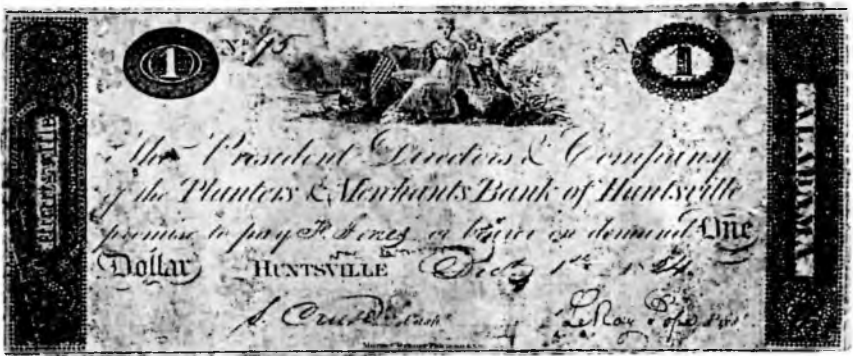 1 No 15 A 1
Huntsville
ALABAMA
The President Directors & Company
of the Planters & Merchants Bank of Huntsville
promise to pay or bearer on demand One
Dollar HUNTSVILLE 1st 1824
S. Cruse Cash
LeRoy Pope Prest